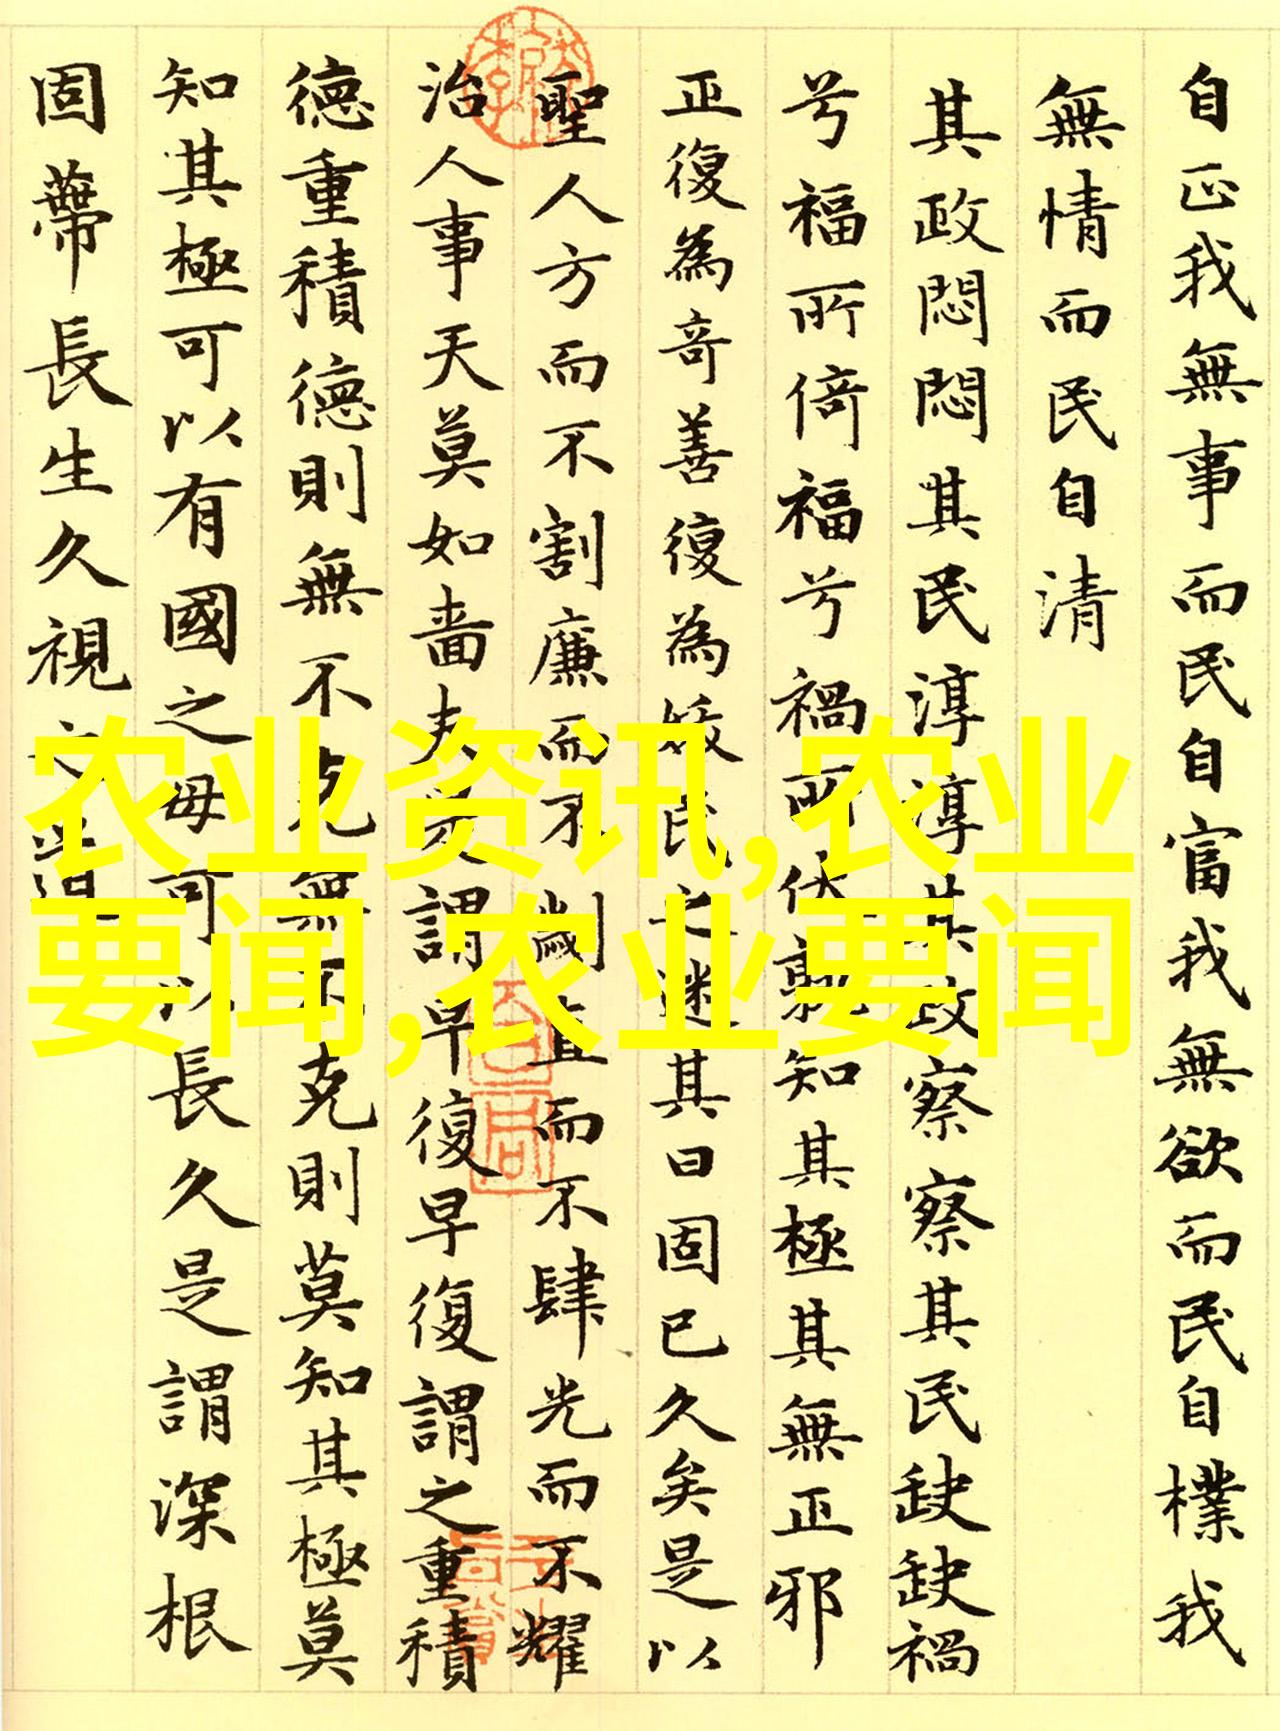 自正我無事而民自富我無欲而民自樸我
無情而民自清
其政悶悶其民淳淳其政察察其民缺缺禍
兮福所倚福兮禍所伏孰知其極其無正邪
正復為奇善復為妖民之迷其日固已久矣是以
聖人方而不割廉而不劌直而不肆光而不耀
治人事天莫如嗇夫是謂早復早復謂之重積
德重積德則無不克無不克則莫知其極莫
知其極可以有國之母可以長久是謂深根
固蔕長生久視之道
农业资讯,农业
要闻,农业要闻